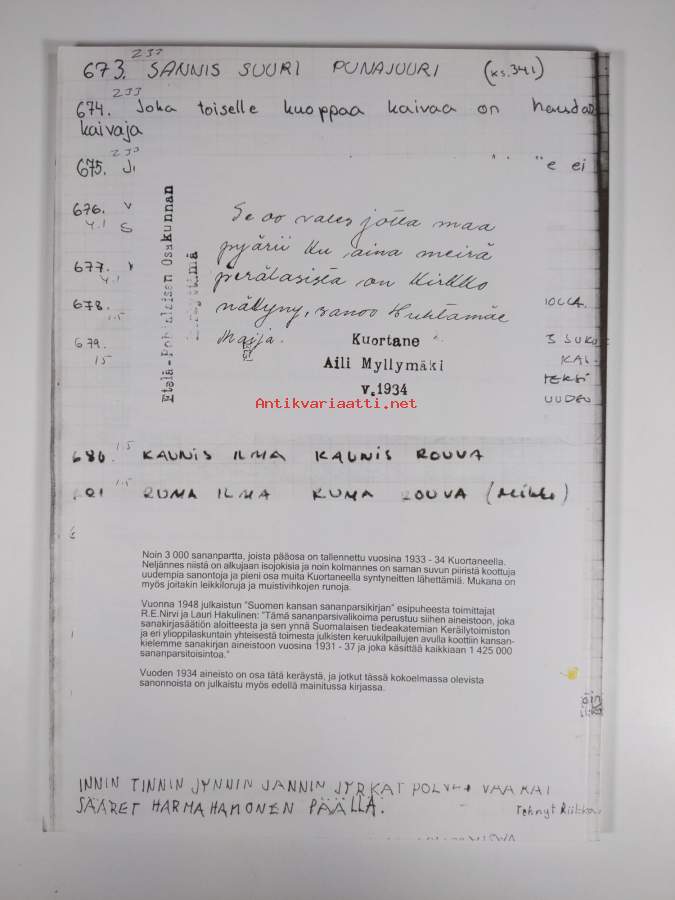 232
673. SANNIS SUURI PUNAJUURI (KS.341)
233
674. Joka toiselle kuoppaa kaivaa on haudan
kaivaja
230
675. e ei
676. v
4.1 S
677.
4.1
678. 1.5 IOLLA.
679. 3 SUKU
15 KAI-
UUDEN
Etelä-Pohjalaisen Osakunnan
Se oo vales jotta maa
pyärii ku aina meirä
perälasista on kirkko
näkyny, sanoo Huhtamäe
Maija.
Kuortane
Aili Myllymäki
v.1934
Antikvariaatti.net
680. 1.5 KAUNIS ILMA KAUNIS ROUVA
681 1.5 RUMA ILMA RUMA ROUVA (Mikko)
Noin 3 000 sananpartta, joista pääosa on tallennettu vuosina 1933 - 34 Kuortaneella.
Neljännes niistä on alkujaan isojokisia ja noin kolmannes on saman suvun piiristä koottuja
uudempia sanontoja ja pieni osa muita Kuortaneella syntyneitten lähettämiä. Mukana on
myös joitakin leikkiloruja ja muistivihkojen runoja.
Vuonna 1948 julkaistun "Suomen kansan sananparsikirjan" esipuheesta toimittajat
R.E.Nirvi ja Lauri Hakulinen: "Tämä sananparsivalikoima perustuu siihen aineistoon, joka
sanakirjasäätiön aloitteesta ja sen ynnä Suomalaisen tiedeakatemian Keräilytoimiston
ja eri ylioppilaskuntain yhteisestä toimesta julkisten keruukilpailujen avulla koottiin kansan-
kielemme sanakirjan aineistoon vuosina 1931 - 37 ja joka käsittää kaikkiaan 1 425 000
sananparsitoisintoa."
Vuoden 1934 aineisto on osa tätä keräystä, ja jotkut tässä kokoelmassa olevista
sanonnoista on julkaistu myös edellä mainitussa kirjassa.
INNIN TINNIN JYNNIN JANNIN JYRKAT POLVET VAARAI
SÄÄRET HARMAHAMONEN PÄÄLLÄ.
Tehnyt Riikka